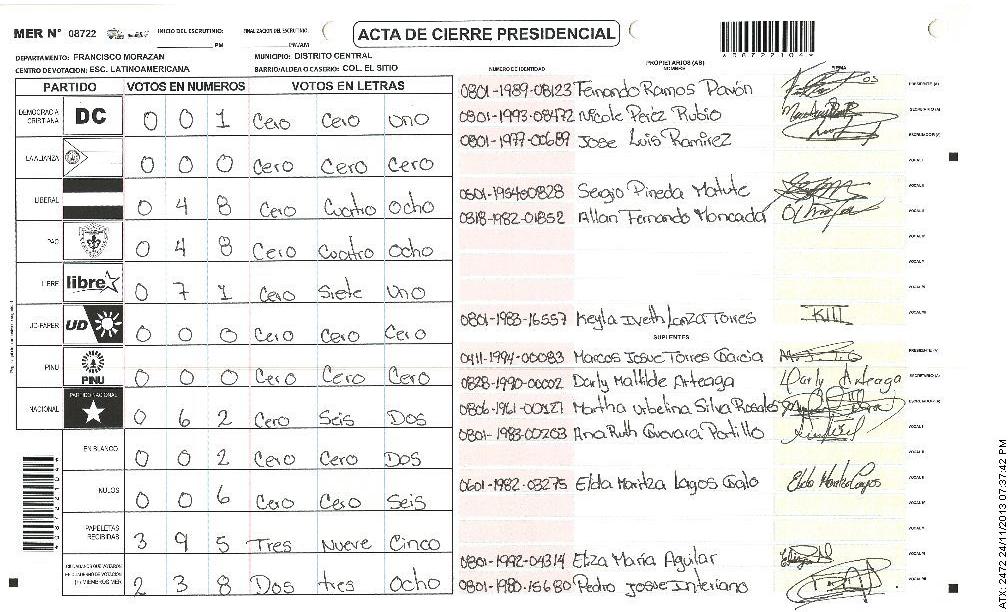 MER N° 08722 INICIO DEL ESCRUTINIO: PM FINALIZACION DEL ESCRUTINIO: PM/AM
ACTA DE CIERRE PRESIDENCIAL
DEPARTAMENTO: FRANCISCO MORAZAN MUNICIPIO: DISTRITO CENTRAL
CENTRO DE VOTACION: ESC. LATINOAMERICANA BARRIO/ALDEA O CASERIO: COL. EL SITIO
PARTIDO VOTOS EN NUMEROS VOTOS EN LETRAS
DEMOCRACIA CRISTIANA DC 0 0 1 Cero Cero Uno
LA ALIANZA 0 0 0 Cero Cero Cero
LIBERAL 0 4 8 Cero Cuatro Ocho
PAC 0 4 8 Cero Cuatro Ocho
LIBRE libre 0 7 1 Cero Siete Uno
UD-FAPER UD 0 0 0 Cero Cero Cero
PINU PINU 0 0 0 Cero Cero Cero
NACIONAL PARTIDO NACIONAL 0 6 2 Cero Seis Dos
EN BLANCO 0 0 2 Cero Cero Dos
NULOS 0 0 6 Cero Cero Seis
PAPELETAS RECIBIDAS 3 9 5 Tres Nueve Cinco
CIUDADANOS QUE VOTARON 2 3 8 Dos tres Ocho
NUMERO DE IDENTIDAD PROPIETARIOS (AS) NOMBRE FIRMA
0801-1989-08123 Fernando Ramos Pavón PRESIDENTE (A)
0801-1993-08472 Nicole Peréz Rubio SECRETARIO (A)
0801-1977-00689 Jose Luis Ramirez ESCRUTADOR (A)
VOCAL I
Sergio Pineda Matute VOCAL II
0318-1982-01852 Allan Fernando Moncada VOCAL III
VOCAL IV
VOCAL V
VOCAL VI
0801-1983-16557 Keyla Iveth Lanza Torres KIII VOCAL VII
SUPLENTES
0411-1994-00083 Marcos Josue Torres Garcia PRESIDENTE (A)
0828-1990-00002 Darly Mathilde Arteaga Darly Arteaga SECRETARIO (A)
0806-1961-00127 Martha Urbelina Silva Rosales ESCRUTADOR (A)
0801-1983-00263 Ana Ruth Guevara Portillo VOCAL I
VOCAL II
0601-1982-03275 Elda Maritza Lagos VOCAL III
VOCAL IV
VOCAL V
0801-1992-04314 Elza María Aguilar VOCAL VI
0801-1980-15680 Pedro Josue Interiano VOCAL VII
ATX-2472 24/11/2013 07:37:42 PM